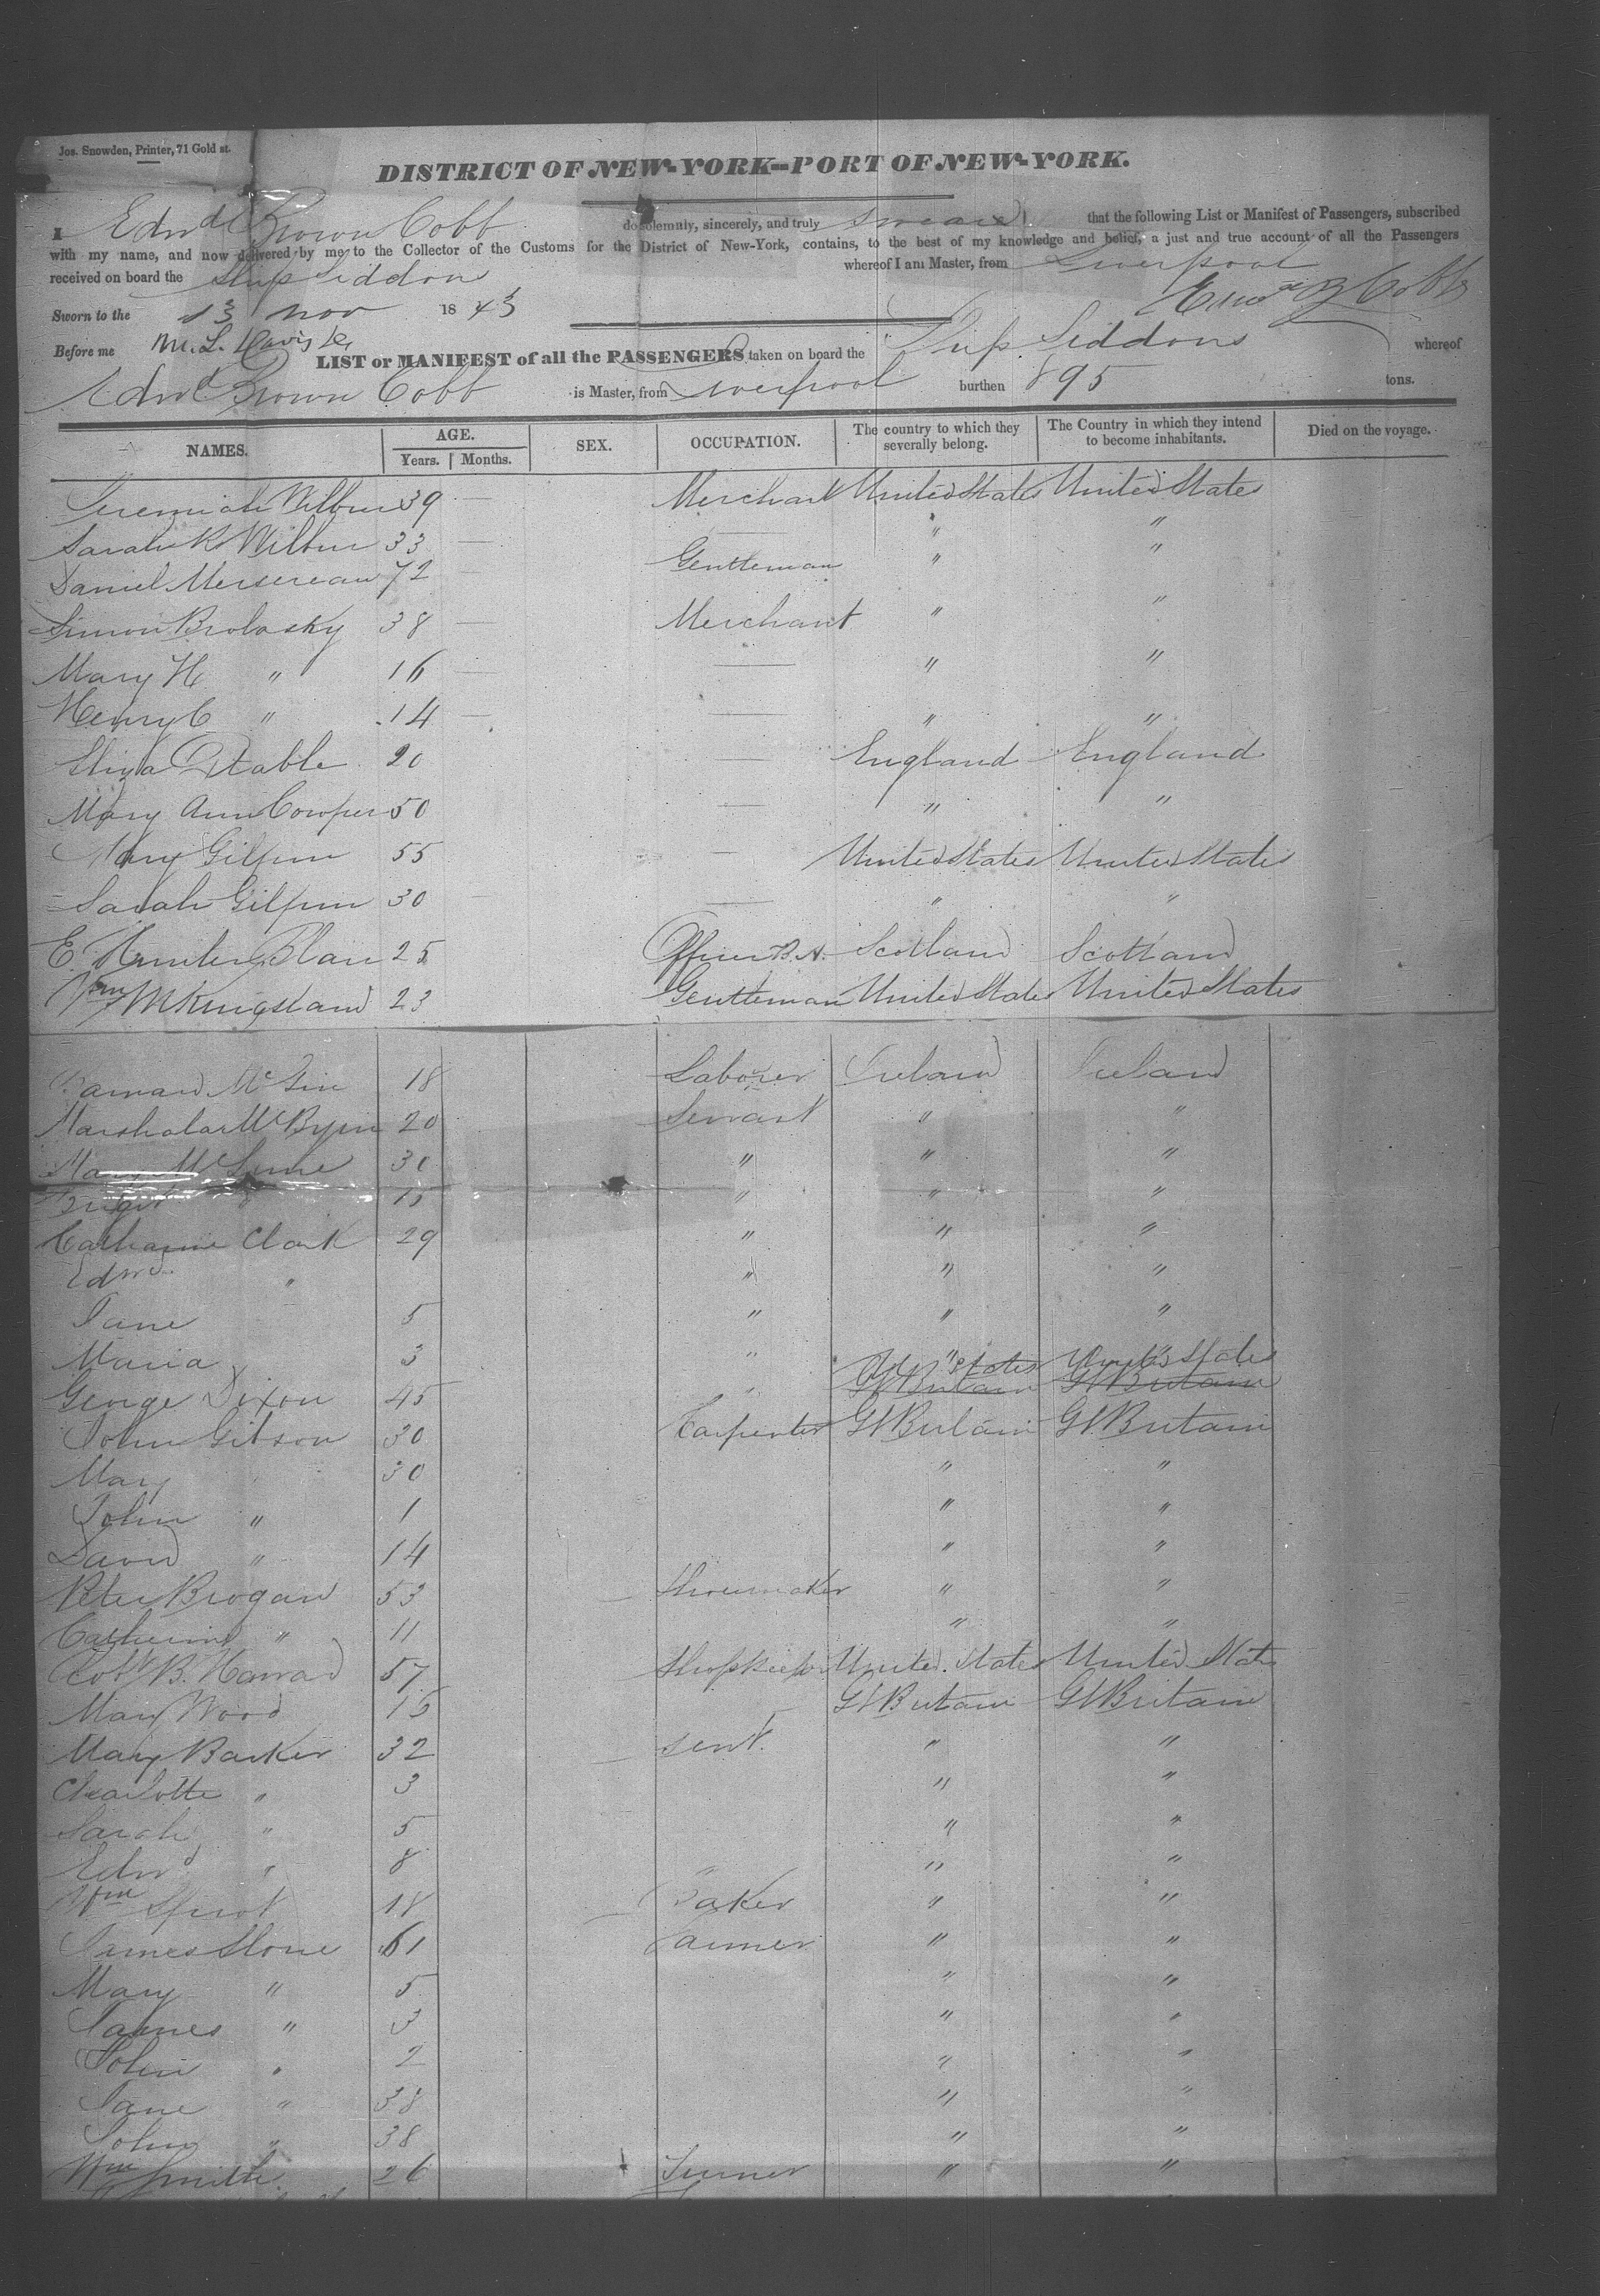 Jos. Snowden, Printer, 71 Gold st.
DISTRICT OF NEW-YORK--PORT OF NEW-YORK.
I Edwd Brown Cobb do solemnly, sincerely, and truly swear that the following List or Manifest of Passengers, subscribed
with my name, and now delivered by me to the Collector of the Customs for the District of New-York, contains, to the best of my knowledge and belief, a just and true account of all the Passengers
received on board the Ship Siddons whereof I am Master, from Liverpool
Sworn to the 13 Nov 1843 Edwd B Cobb
Before me M. L. Davis
LIST or MANIFEST of all the PASSENGERS taken on board the Ship Siddons whereof
Edwd Brown Cobb is Master, from Liverpool burthen 895 tons.
NAMES. AGE. SEX. OCCUPATION. The country to which they severally belong. The Country in which they intend to become inhabitants. Died on the voyage.
Years. Months.
Jeremiah Wilbur 39 — Merchant United States United States
Sarah K Wilbur 33 — — " "
Daniel Mersereau 72 — Gentleman " "
Simon Brolasky 38 — Merchant " "
Mary H " 16 — — " "
Henry C " 14 — — " "
Eliza Stable 20 — England England
Mary Ann Cowper 50 — " "
Mary Gilpin 55 — United States United States
Sarah Gilpin 30 — — " "
E. Hunter Blair 25 Officer B.A. Scotland Scotland
Wm M Kingsland 23 Gentleman United States United States
18 Laborer Ireland Ireland
20 Servant " "
Mary 30 " " "
15 " " "
Catharine Clark 29 " " "
Edwd " " " "
Jane 5 " " "
Maria 3 " " "
George Dixon 45 " Utd States United States
Gt Britain Gt Britain
John Gibson 30 Carpenter Gt Britain Gt Britain
Mary 30 " "
John " 1 " "
David " 14 " "
Peter Brogan 53 Shoemaker " "
Catherine " 11 " "
Robt B. 57 Shopkeeper United States United States
Mary Wood 15 Gt Britain Gt Britain
Mary Barker 32 Sevt. " "
Charlotte " 3 " "
Sarah " 5 " "
Edwd " 8 " "
Wm 18 Baker " "
James Stone 61 Farmer " "
Mary " 5 " "
James " 3 " "
John " 2 " "
Jane " 38 " "
John " 38 " "
Wm Smith 26 Turner " "